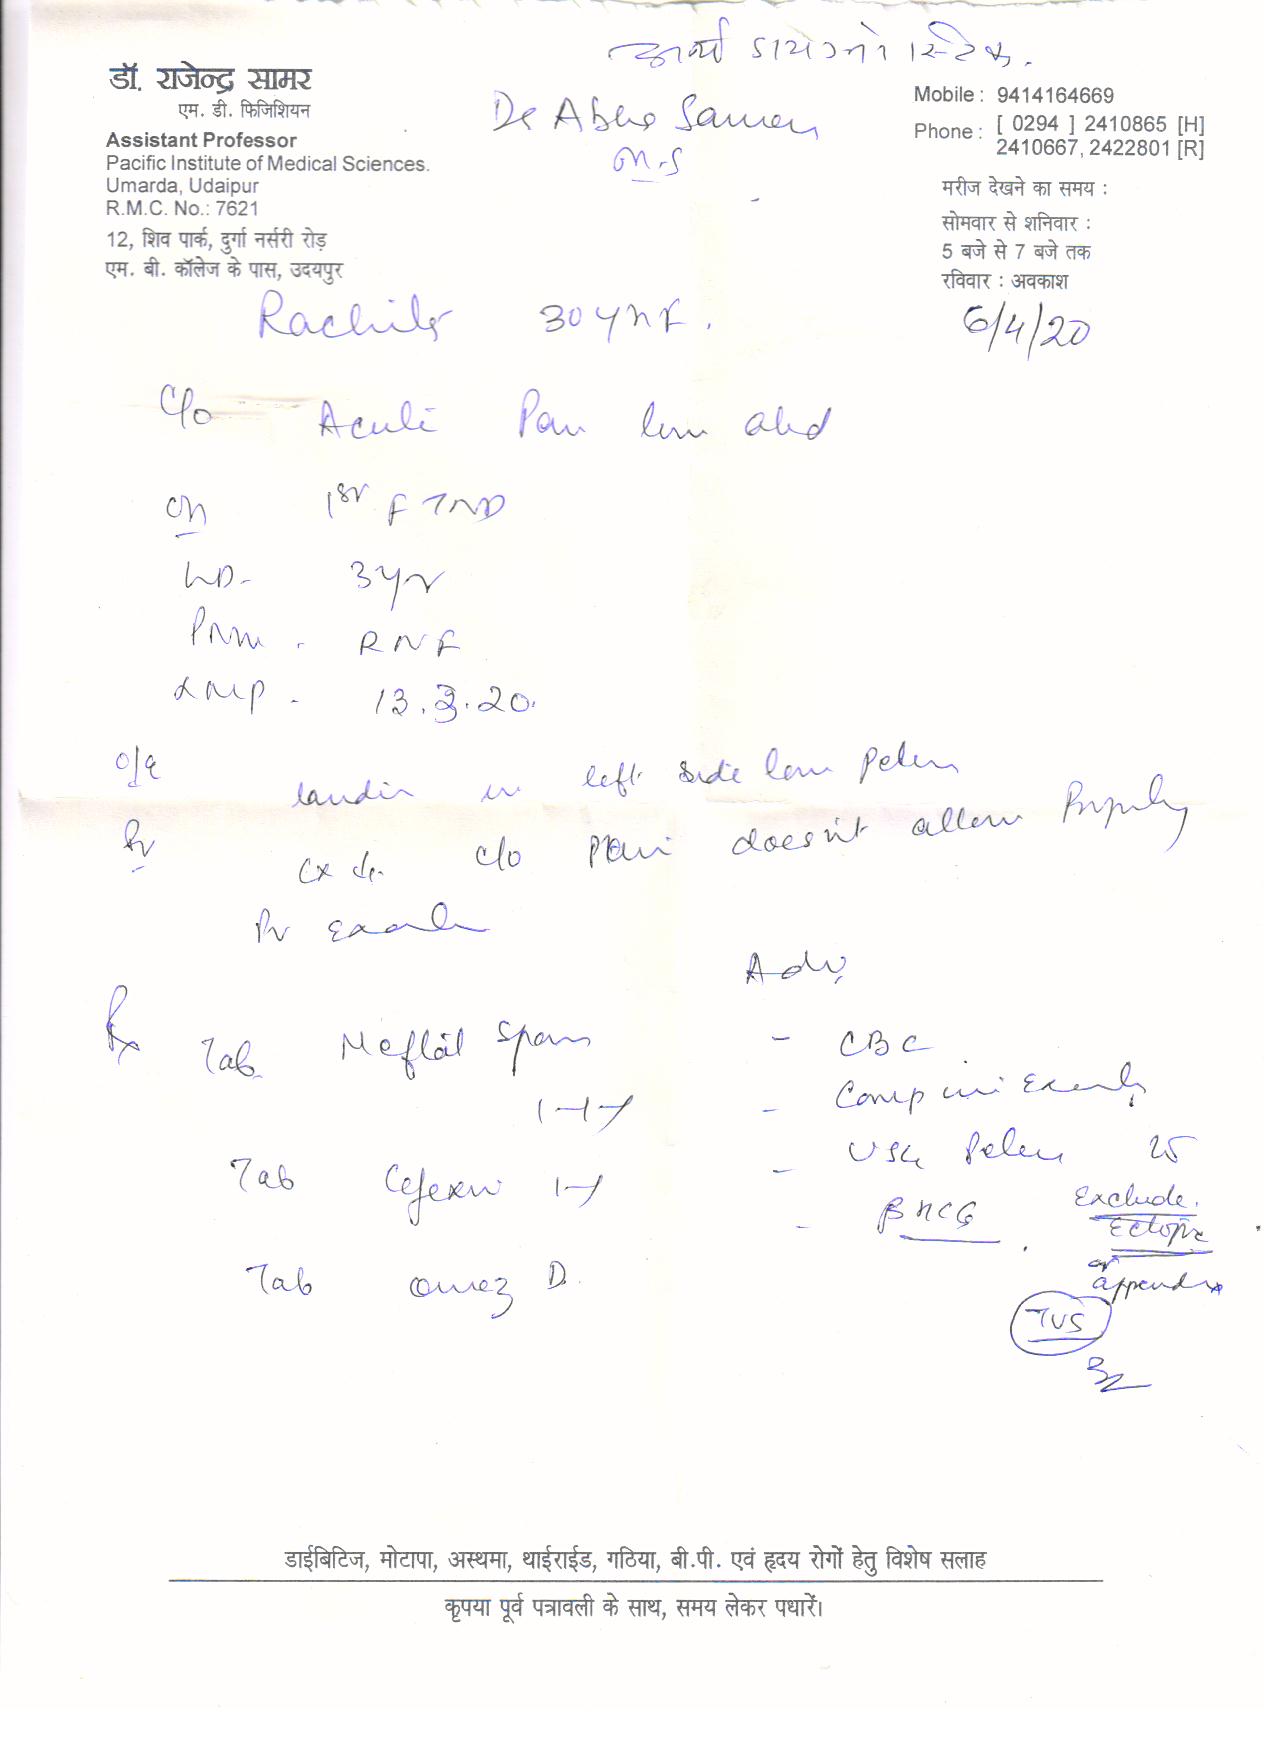 डॉ. राजेन्द्र सामर
एम. डी. फिजिशियन
Assistant Professor
Pacific Institute of Medical Sciences.
Umarda, Udaipur
R.M.C. No.: 7621
12, शिव पार्क, दुर्गा नर्सरी रोड़
एम. बी. कॉलेज के पास, उदयपुर
Dr
M.S
Mobile : 9414164669
Phone : [ 0294 ] 2410865 [H]
2410667, 2422801 [R]
मरीज देखने का समय :
सोमवार से शनिवार :
5 बजे से 7 बजे तक
रविवार : अवकाश
6/4/20
30 yr F.
C/o Acute Pain low abd
1st FTND
LD- 3yr
RNF
LMP - 13.3.20.
O/E
in left side low Pelvis
C/o Pain doesn't allow Properly
PV
Adv,
Rx Tab Meftal Spas
1-1-1
Tab 1-1
Tab Omez D.
- CBC
- Comp
- USG Pelvis
- βHCG
Exclude.
Ectopic
or
appendix
TVS
डाईबिटिज, मोटापा, अस्थमा, थाईराईड, गठिया, बी.पी. एवं हृदय रोगों हेतु विशेष सलाह
कृपया पूर्व पत्रावली के साथ, समय लेकर पधारें।